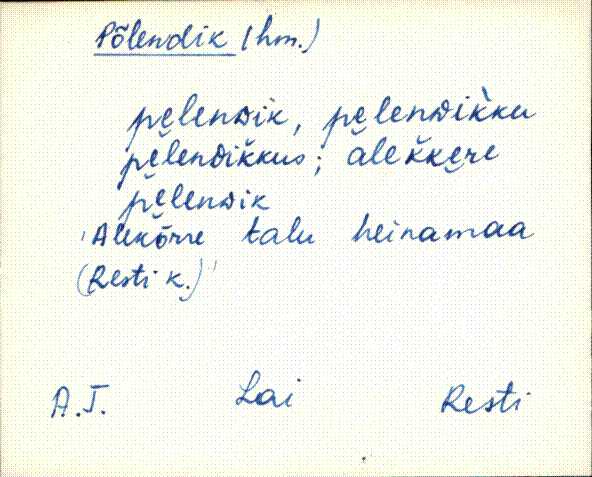 Põlendik (hm.)
pe̮lenᴅik, pe̮lenᴅik̆ku
pe̮lenᴅik̆kus; ălek̆ke̮re
pe̮lenᴅik
'Alekõrre talu heinamaa
(Resti k.)'
A.T. Lai Resti